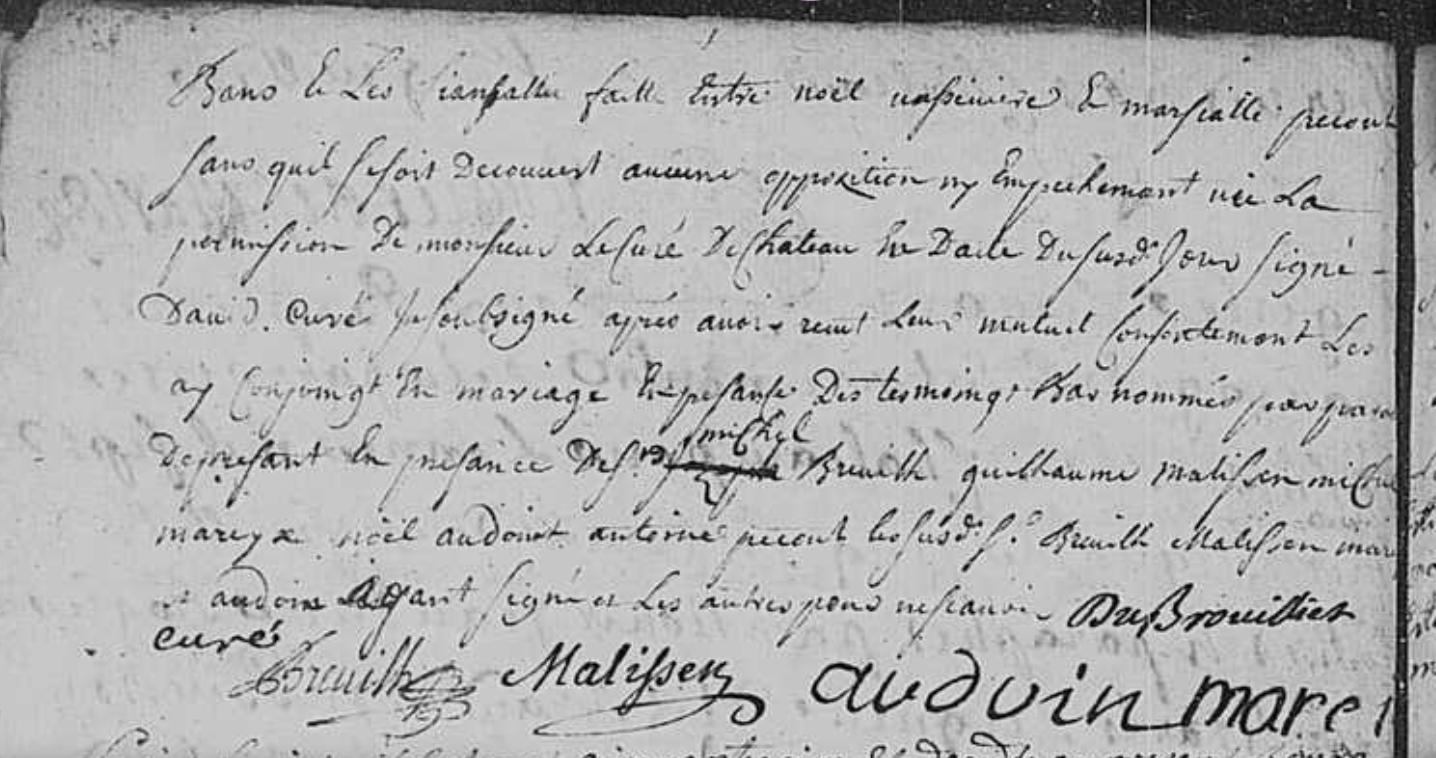 Bans et Les fiansalle faitte Entre noël et marsialle pecout
sans quil se soit Decouvert aucune opposition ny Empechemant veu La
permission De monsieur Le Curé De Chateau En Date Du susd. Jour signé
David. Curé Je soubsigné aprés avoir receut Leur mutuel Consentemant Les
ay Conjoingt En mariage En presanse Des tesmoings Bas nommés par
De presant En presance De s.rs michel Breuilh guilhaume Malissen
noël audoint antoine pecout les susd. s.r Breuilh Malissen
et audoin ayant signé et Les autres pour ne scavoir DuBrouilliet
curé
Breuilh Malissen audoin mare